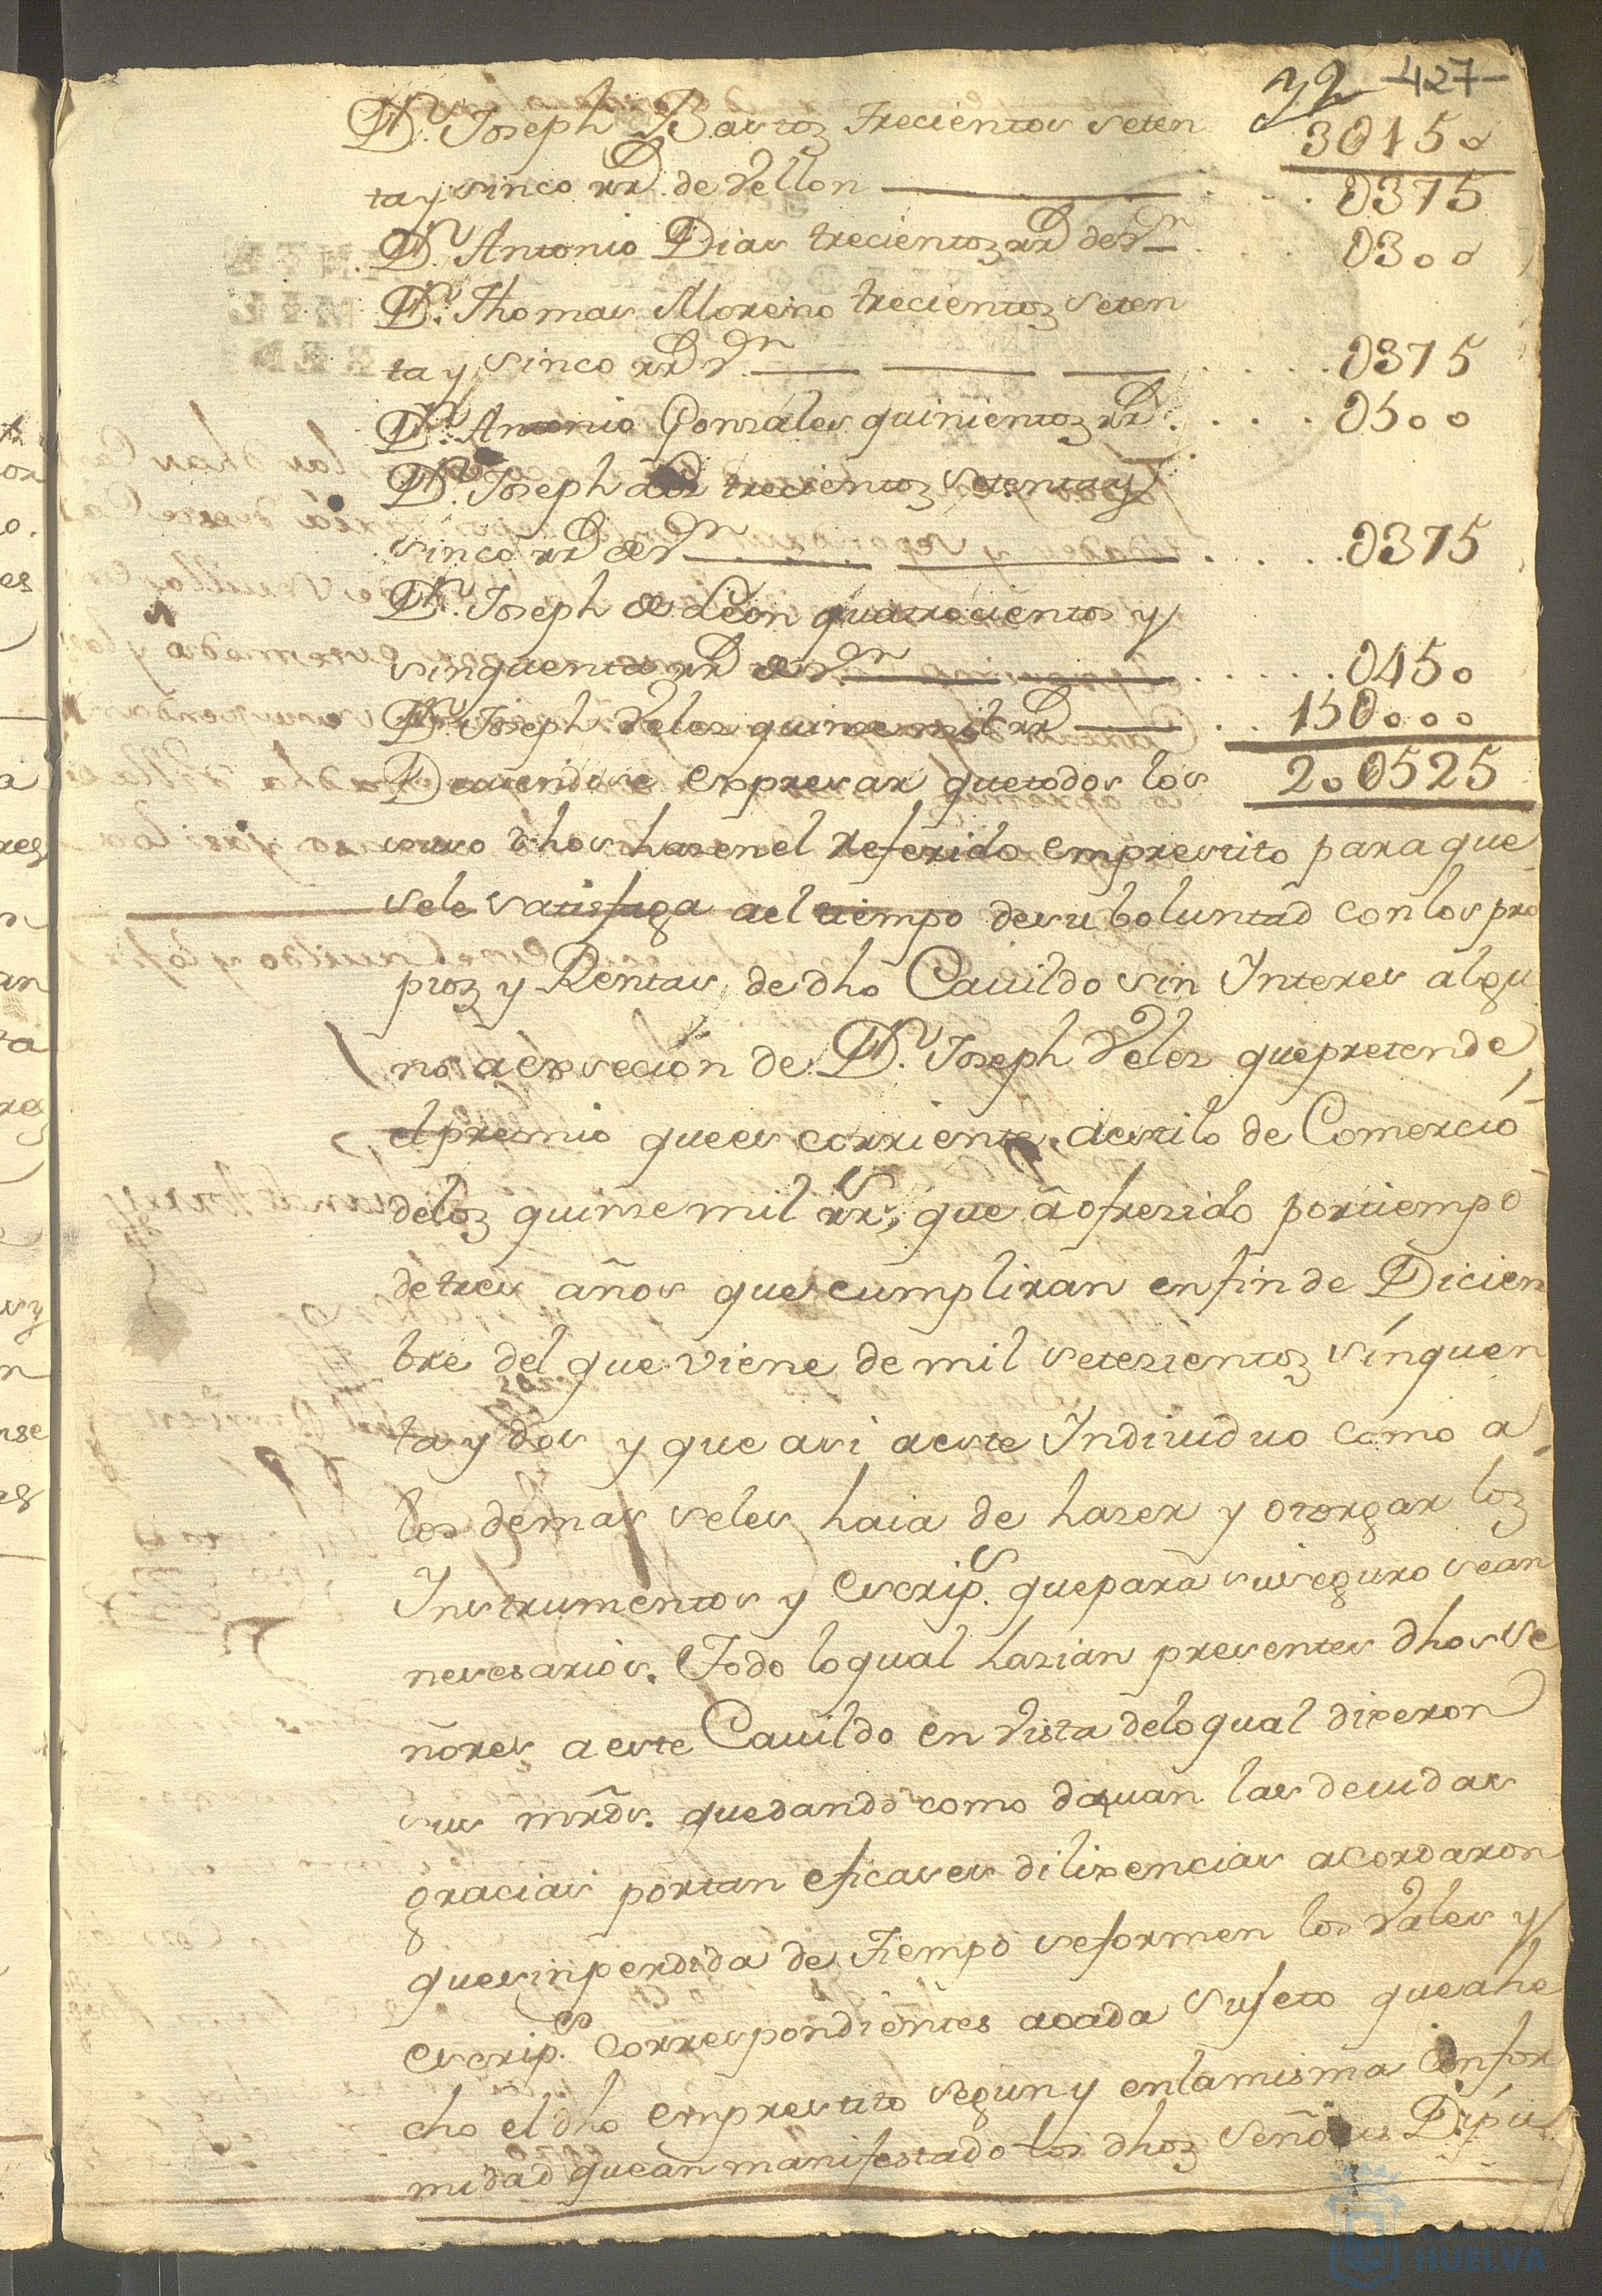 32 427
Dn. Joseph Bastos trecientos seten 3U150
ta y sinco rrs. de Vellon U375
Dn. Antonio Dias trecientos rrs de vn U300
Dn. Thomas Moreno trecientos seten
ta y sinco rrs vn U375
Dn. Antonio Gonzales quinientos rrs. U500
Dn. Joseph trecientos setenta y
sinco rrs de vn U375
Dn. Joseph de Leon quatrocientos y
sinquenta rrs de vn U450
Dn. Joseph Veles quinse mil rrs 15U000
Deviendose expresar que todos los 20U525
suso dhos hasen el referido emprestito para que
se le satisfaga ael tiempo de su boluntad con los pro
pios y Rentas de dho Cauildo sin Interes algu
no a exsecion de Dn. Joseph Veles que pretende
el premio que es corriente a estilo de Comercio
de los quinse mil rrs, que a ofresido por tiempo
de tres años que cumpliran en fin de Dicien
bre del que viene de mil setesientos sinquen
ta y dos y que asi a este Indiuiduo como a
los demas se les haia de haser y otorgar los
Instrumentos y escrips. que para su seguro sean
nesesarios. Todo lo qual hasian presentes dhos se
ñores a este Cauildo en vista de lo qual dixeron
sus mrds. quedando como dauan las deuidas
gracias por tan eficases dilixencias acordaron
que sin perdida de tiempo se formen los Vales y
escrips. correspondientes a cada sujeto que a he
cho el dho emprestito segun y en la misma confor
midad que an manifestado los dhos señores Dipu
HUELVA